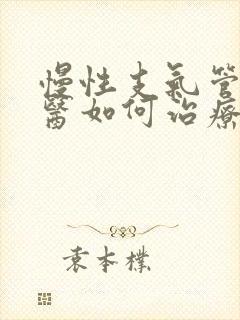 慢性支氣管
醫如何治療
袁本樸